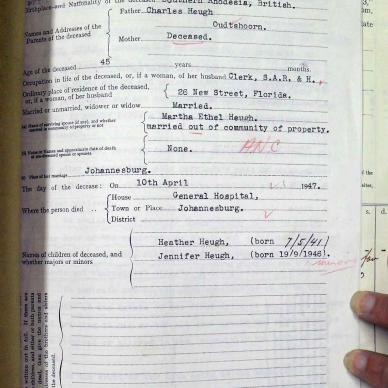 Birthplace and Nationality of the deceased Southern Rhodesia, British.
Names and Addresses of the Parents of the deceased
Father Charles Heugh
Oudtshoorn.
Mother Deceased.
Age of the deceased 45 years months.
Occupation in life of the deceased, or, if a woman, of her husband Clerk, S.A.R. & H.
Ordinary place of residence of the deceased, or, if a woman, of her husband
26 New Street, Florida.
Married or unmarried, widower or widow Married.
(a) Name of surviving spouse (if any), and whether married in community of property or not
Martha Ethel Heugh.
married out of community of property.
ANC
(b) Name or Names and approximate date of death of pre-deceased spouse or spouses
None.
(c) Place of last marriage Johannesburg.
The day of the decease: On 10th April 1947.
Where the person died ..
House General Hospital,
Town or Place Johannesburg.
District
Names of children of deceased, and whether majors or minors
Heather Heugh, (born 7/5/41)
Jennifer Heugh, (born 19/9/1946).
s. d.